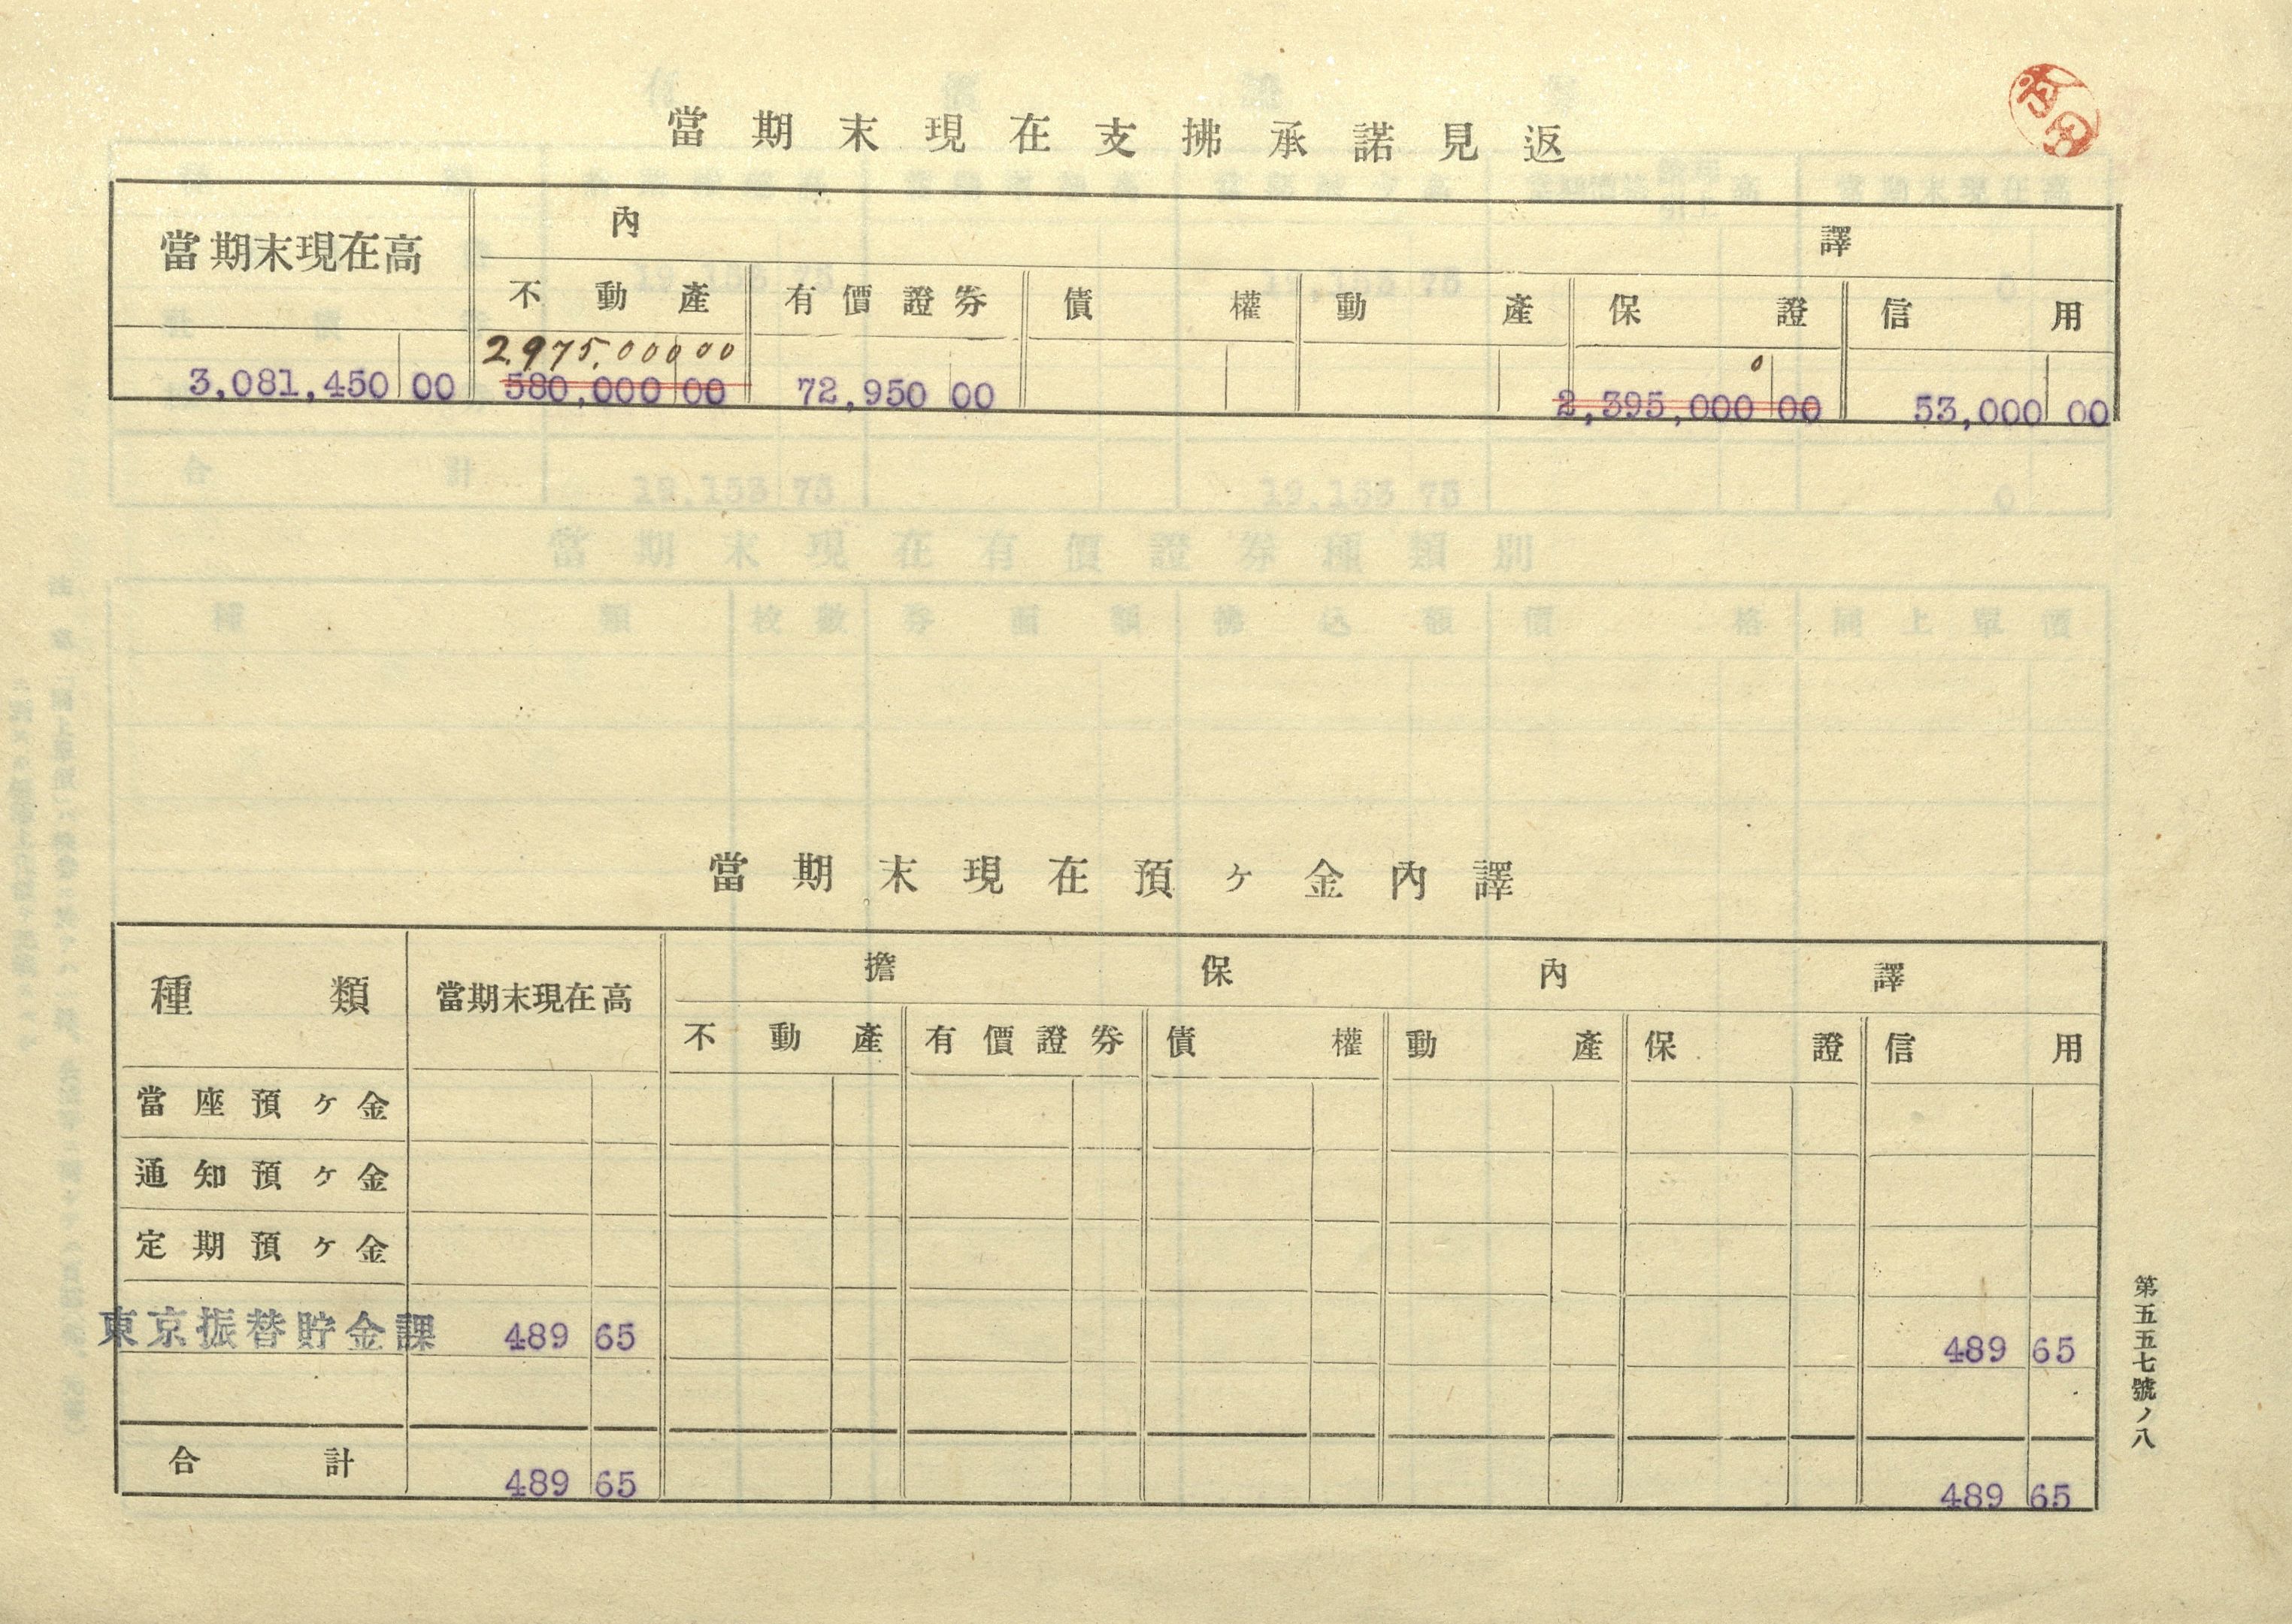 當期末現在支拂承諾見返
當期末現在高 內譯
不動產 有價證券 債權 動產 保證 信用
2,975,000 00 0
3,081,450 00 580,000 00 72,950 00 2,395,000 00 53,000 00
當期末現在預ヶ金內譯
種類 當期末現在高 擔保內譯
不動產 有價證券 債權 動產 保證 信用
當座預ヶ金
通知預ヶ金
定期預ヶ金
東京振替貯金課 489 65 489 65
合計 489 65 489 65
第五五七號ノ八